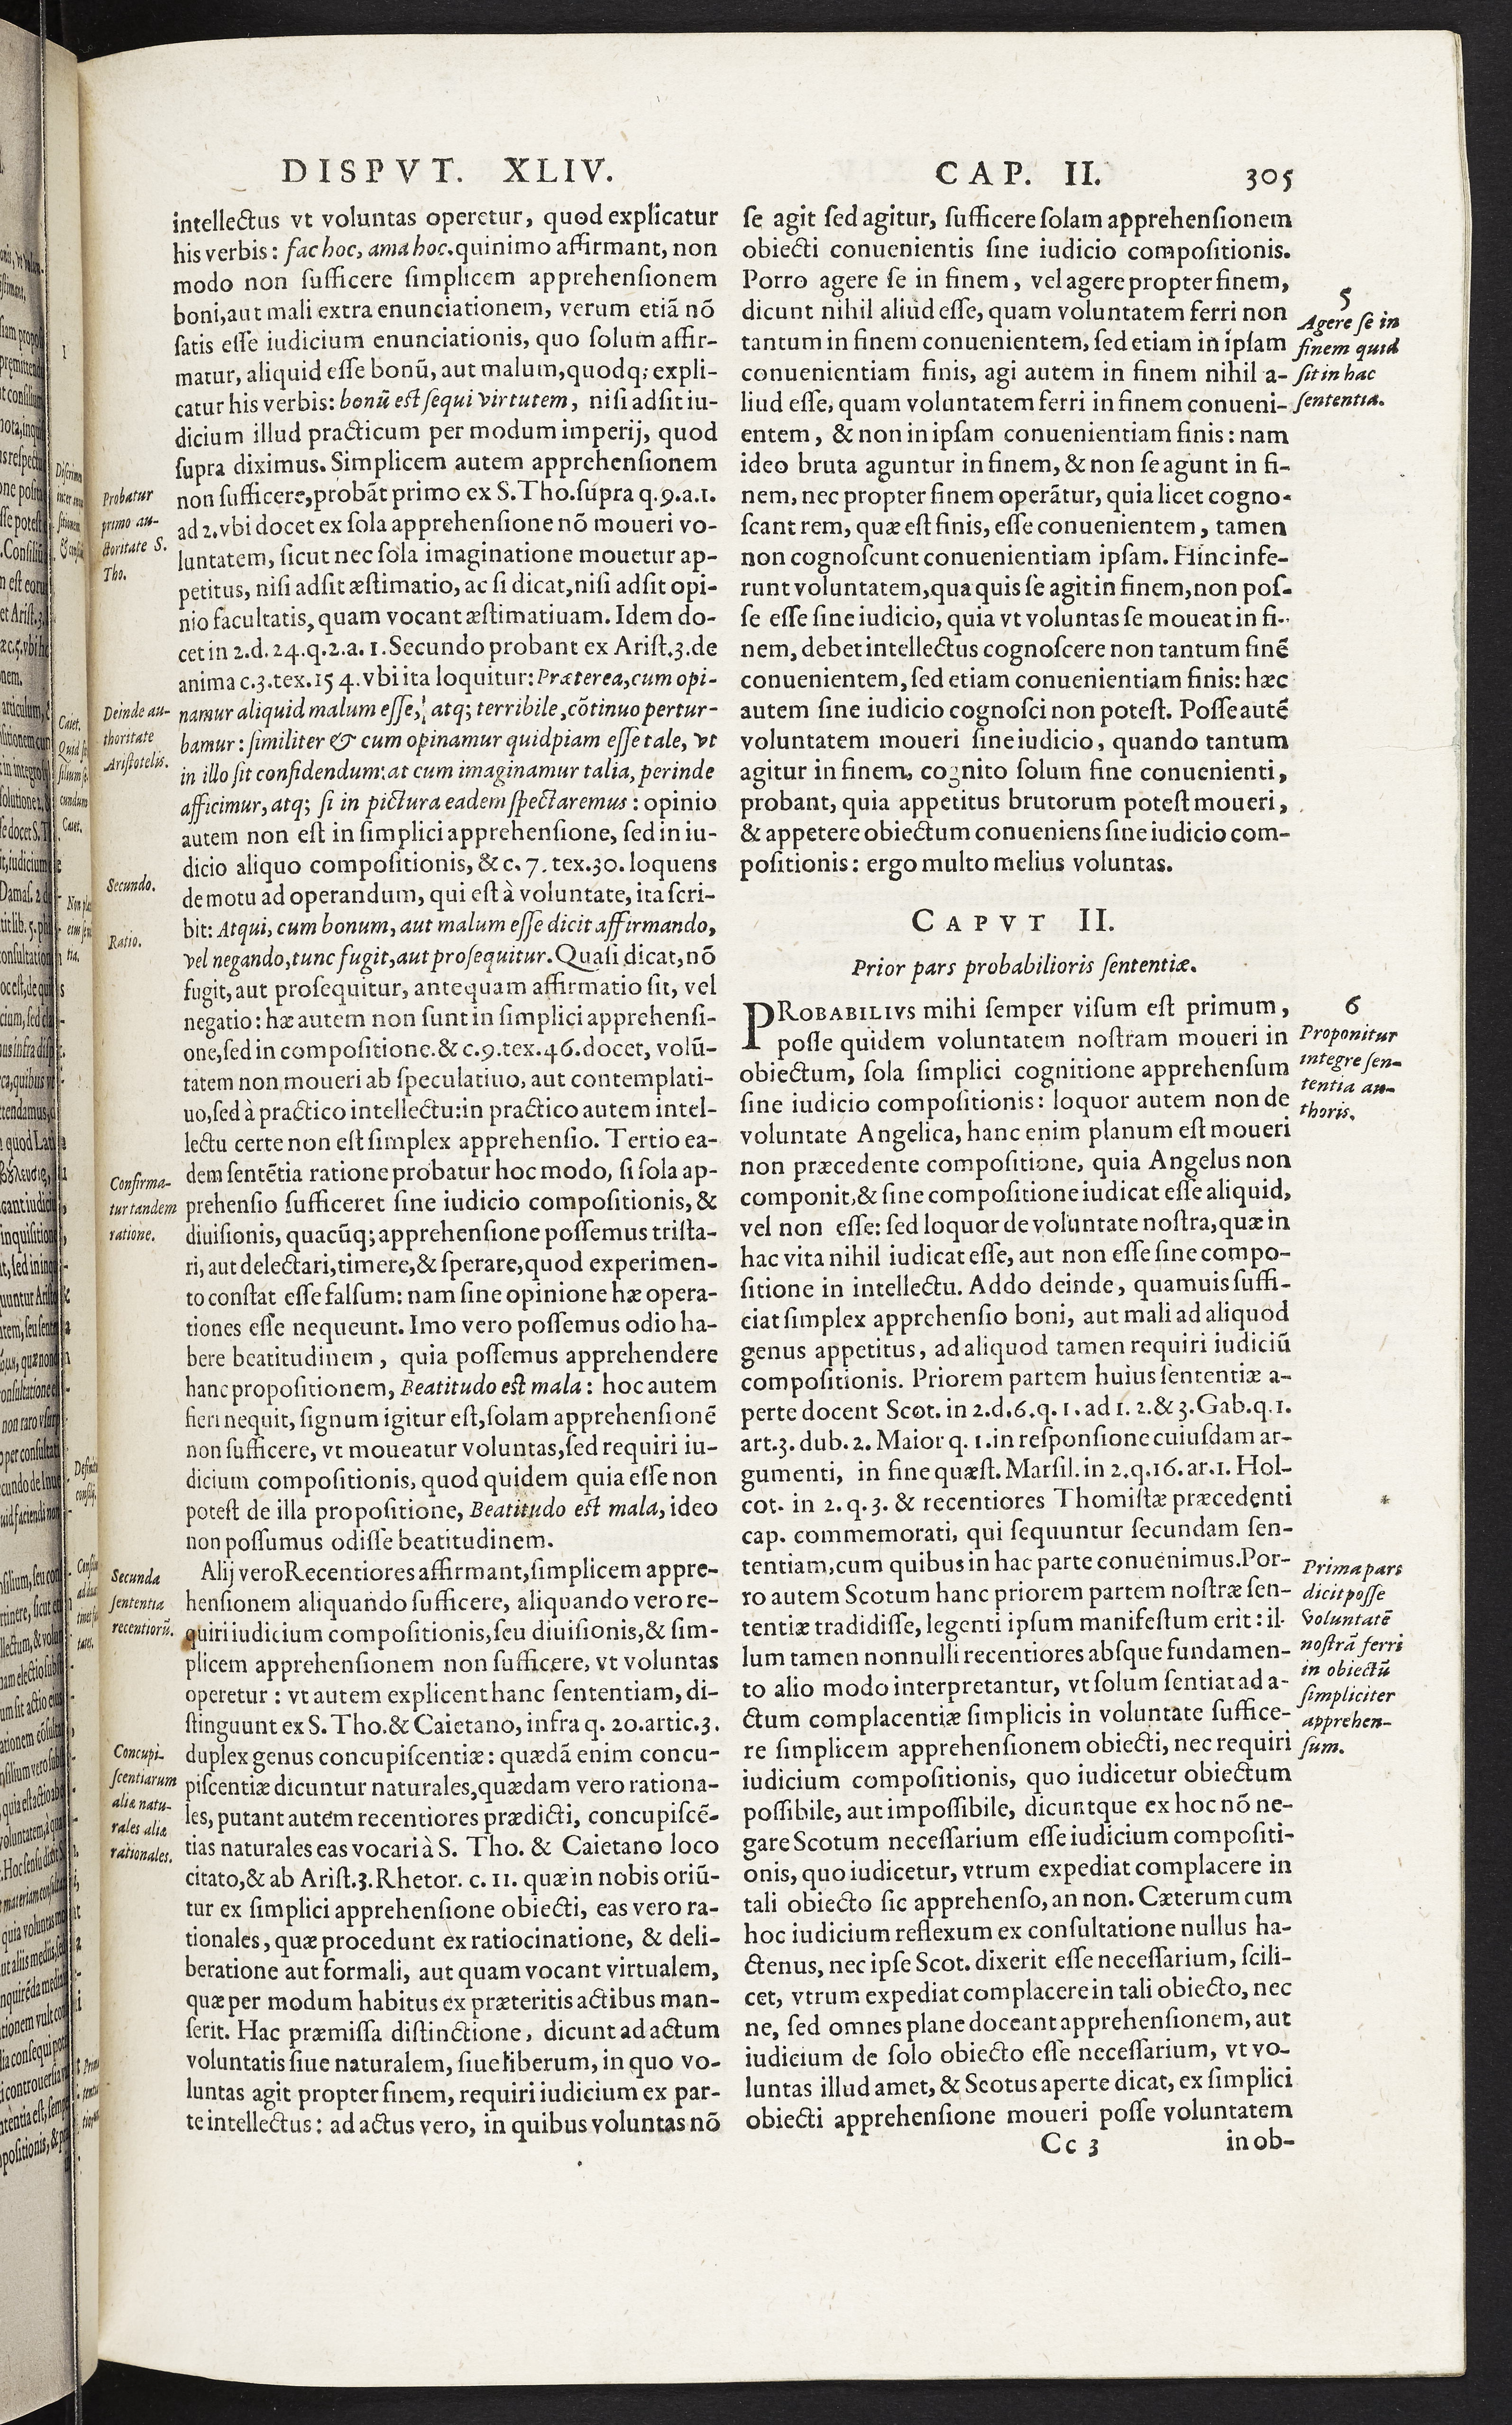 DISPVT. XLIV.
intellectus vt voluntas operetur, quod explicatur
his verbis: fac hoc, ama hoc. quinimo affirmant, non
modo non sufficere simplicem apprehensionem
boni, aut mali extra enunciationem, verum etiã nõ
satis esse iudicium enunciationis, quo solum affir-
matur, aliquid esse bonũ, aut malum, quodq; expli-
catur his verbis: bonũ est sequi virtutem, nisi adsit iu-
dicium illud practicum per modum imperij, quod
supra diximus. Simplicem autem apprehensionem
non sufficere, probãt primo ex S. Tho. supra q. 9. a. 1.
ad 2. vbi docet ex sola apprehensione nõ moueri vo-
luntatem, sicut nec sola imaginatione mouetur ap-
petitus, nisi adsit æstimatio, ac si dicat, nisi adsit opi-
nio facultatis, quam vocant æstimatiuam. Idem do-
cet in 2. d. 24. q. 2. a. 1. Secundo probant ex Arist. 3. de
anima c. 3. tex. 154. vbi ita loquitur: Præterea, cum opi-
namur aliquid malum esse, atq; terribile, cõtinuo pertur-
bamur: similiter & cum opinamur quidpiam esse tale, vt
in illo sit confidendum: at cum imaginamur talia, perinde
afficimur, atq; si in pictura eadem spectaremus: opinio
autem non est in simplici apprehensione, sed in iu-
dicio aliquo compositionis, & c. 7. tex. 30. loquens
de motu ad operandum, qui est à voluntate, ita scri-
bit: Atqui, cum bonum, aut malum esse dicit affirmando,
vel negando, tunc fugit, aut prosequitur. Quasi dicat, nõ
fugit, aut prosequitur, antequam affirmatio sit, vel
negatio: hæ autem non sunt in simplici apprehensi-
one, sed in compositione. & c. 9. tex. 46. docet, volũ-
tatem non moueri ab speculatiuo, aut contemplati-
uo, sed à practico intellectu: in practico autem intel-
lectu certe non est simplex apprehensio. Tertio ea-
dem sentẽtia ratione probatur hoc modo, si sola ap-
prehensio sufficeret sine iudicio compositionis, &
diuisionis, quacũq; apprehensione possemus trista-
ri, aut delectari, timere, & sperare, quod experimen-
to constat esse falsum: nam sine opinione hæ opera-
tiones esse nequeunt. Imo vero possemus odio ha-
bere beatitudinem, quia possemus apprehendere
hanc propositionem, Beatitudo est mala: hoc autem
fieri nequit, signum igitur est, solam apprehensionẽ
non sufficere, vt moueatur voluntas, sed requiri iu-
dicium compositionis, quod quidem quia esse non
potest de illa propositione, Beatitudo est mala, ideo
non possumus odisse beatitudinem.
Alij vero Recentiores affirmant, simplicem appre-
hensionem aliquando sufficere, aliquando vero re-
quiri iudicium compositionis, seu diuisionis, & sim-
plicem apprehensionem non sufficere, vt voluntas
operetur: vt autem explicent hanc sententiam, di-
stinguunt ex S. Tho. & Caietano, infra q. 20. artic. 3.
duplex genus concupiscentiæ: quædã enim concu-
piscentiæ dicuntur naturales, quædam vero rationa-
les, putant autem recentiores prædicti, concupiscẽ-
tias naturales eas vocari à S. Tho. & Caietano loco
citato, & ab Arist. 3. Rhetor. c. 11. quæ in nobis oriũ-
tur ex simplici apprehensione obiecti, eas vero ra-
tionales, quæ procedunt ex ratiocinatione, & deli-
beratione aut formali, aut quam vocant virtualem,
quæ per modum habitus ex præteritis actibus man-
serit. Hac præmissa distinctione, dicunt ad actum
voluntatis siue naturalem, siue liberum, in quo vo-
luntas agit propter finem, requiri iudicium ex par-
te intellectus: ad actus vero, in quibus voluntas nõ
Probatur
primo au-
ctoritate S.
Tho.
Deinde au-
thoritate
Aristotelis.
Secundo.
Ratio.
Confirma-
tur tandem
ratione.
Secunda
sententia
recentiorũ.
Concupi-
scentiarum
aliæ natu-
rales aliæ
rationales.
CAP. II. 305
se agit sed agitur, sufficere solam apprehensionem
obiecti conuenientis sine iudicio compositionis.
Porro agere se in finem, vel agere propter finem,
dicunt nihil aliud esse, quam voluntatem ferri non
tantum in finem conuenientem, sed etiam in ipsam
conuenientiam finis, agi autem in finem nihil a-
liud esse, quam voluntatem ferri in finem conueni-
entem, & non in ipsam conuenientiam finis: nam
ideo bruta aguntur in finem, & non se agunt in fi-
nem, nec propter finem operãtur, quia licet cogno-
scant rem, quæ est finis, esse conuenientem, tamen
non cognoscunt conuenientiam ipsam. Hinc infe-
runt voluntatem, qua quis se agit in finem, non pos-
se esse sine iudicio, quia vt voluntas se moueat in fi-
nem, debet intellectus cognoscere non tantum finẽ
conuenientem, sed etiam conuenientiam finis: hæc
autem sine iudicio cognosci non potest. Posse autẽ
voluntatem moueri sine iudicio, quando tantum
agitur in finem, cognito solum fine conuenienti,
probant, quia appetitus brutorum potest moueri,
& appetere obiectum conueniens sine iudicio com-
positionis: ergo multo melius voluntas.
CAPVT II.
Prior pars probabilioris sententiæ.
PROBABILIVS mihi semper visum est primum,
posse quidem voluntatem nostram moueri in
obiectum, sola simplici cognitione apprehensum
sine iudicio compositionis: loquor autem non de
voluntate Angelica, hanc enim planum est moueri
non præcedente compositione, quia Angelus non
componit, & sine compositione iudicat esse aliquid,
vel non esse: sed loquor de voluntate nostra, quæ in
hac vita nihil iudicat esse, aut non esse sine compo-
sitione in intellectu. Addo deinde, quamuis suffi-
ciat simplex apprehensio boni, aut mali ad aliquod
genus appetitus, ad aliquod tamen requiri iudiciũ
compositionis. Priorem partem huius sententiæ a-
perte docent Scot. in 2. d. 6. q. 1. ad 1. 2. & 3. Gab. q. 1.
art. 3. dub. 2. Maior q. 1. in responsione cuiusdam ar-
gumenti, in fine quæst. Marsil. in 2. q. 16. ar. 1. Hol-
cot. in 2. q. 3. & recentiores Thomistæ præcedenti
cap. commemorati, qui sequuntur secundam sen-
tentiam, cum quibus in hac parte conuenimus. Por-
ro autem Scotum hanc priorem partem nostræ sen-
tentiæ tradidisse, legenti ipsum manifestum erit: il-
lum tamen nonnulli recentiores absque fundamen-
to alio modo interpretantur, vt solum sentiat ad a-
ctum complacentiæ simplicis in voluntate suffice-
re simplicem apprehensionem obiecti, nec requiri
iudicium compositionis, quo iudicetur obiectum
possibile, aut impossibile, dicuntque ex hoc nõ ne-
gare Scotum necessarium esse iudicium compositi-
onis, quo iudicetur, vtrum expediat complacere in
tali obiecto sic apprehenso, an non. Cæterum cum
hoc iudicium reflexum ex consultatione nullus ha-
ctenus, nec ipse Scot. dixerit esse necessarium, scili-
cet, vtrum expediat complacere in tali obiecto, nec
ne, sed omnes plane doceant apprehensionem, aut
iudicium de solo obiecto esse necessarium, vt vo-
luntas illud amet, & Scotus aperte dicat, ex simplici
obiecti apprehensione moueri posse voluntatem
Cc 3 in ob-
5
Agere se in
finem quid
sit in hac
sententia.
6
Proponitur
integre sen-
tentia au-
thoris.
Prima pars
dicit posse
voluntatẽ
nostrã ferri
in obiectũ
simpliciter
apprehen-
sum.